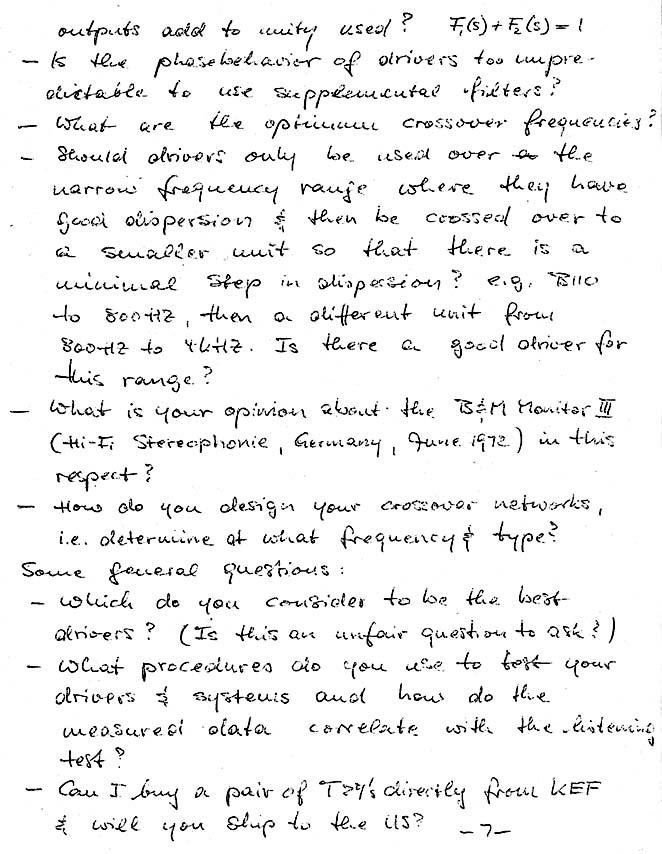 outputs add to unity used? F₁(s) + F₂(s) = 1
- Is the phasebehavior of drivers too unpre-
dictable to use supplemental filters?
- What are the optimum crossover frequencies?
- Should drivers only be used over the
narrow frequency range where they have
good dispersion & then be crossed over to
a smaller unit so that there is a
minimal step in dispersion? e.g. B110
to 800Hz, then a different unit from
800Hz to 4kHz. Is there a good driver for
this range?
- What is your opinion about the B&M Monitor III
(Hi-Fi Stereophonie, Germany, June 1972) in this
respect?
- How do you design your crossover networks,
i.e. determine at what frequency & type?
Some general questions:
- Which do you consider to be the best
drivers? (Is this an unfair question to ask?)
- What procedures do you use to test your
drivers & systems and how do the
measured data correlate with the listening
test?
- Can I buy a pair of directly from KEF
& will you ship to the US? -7-